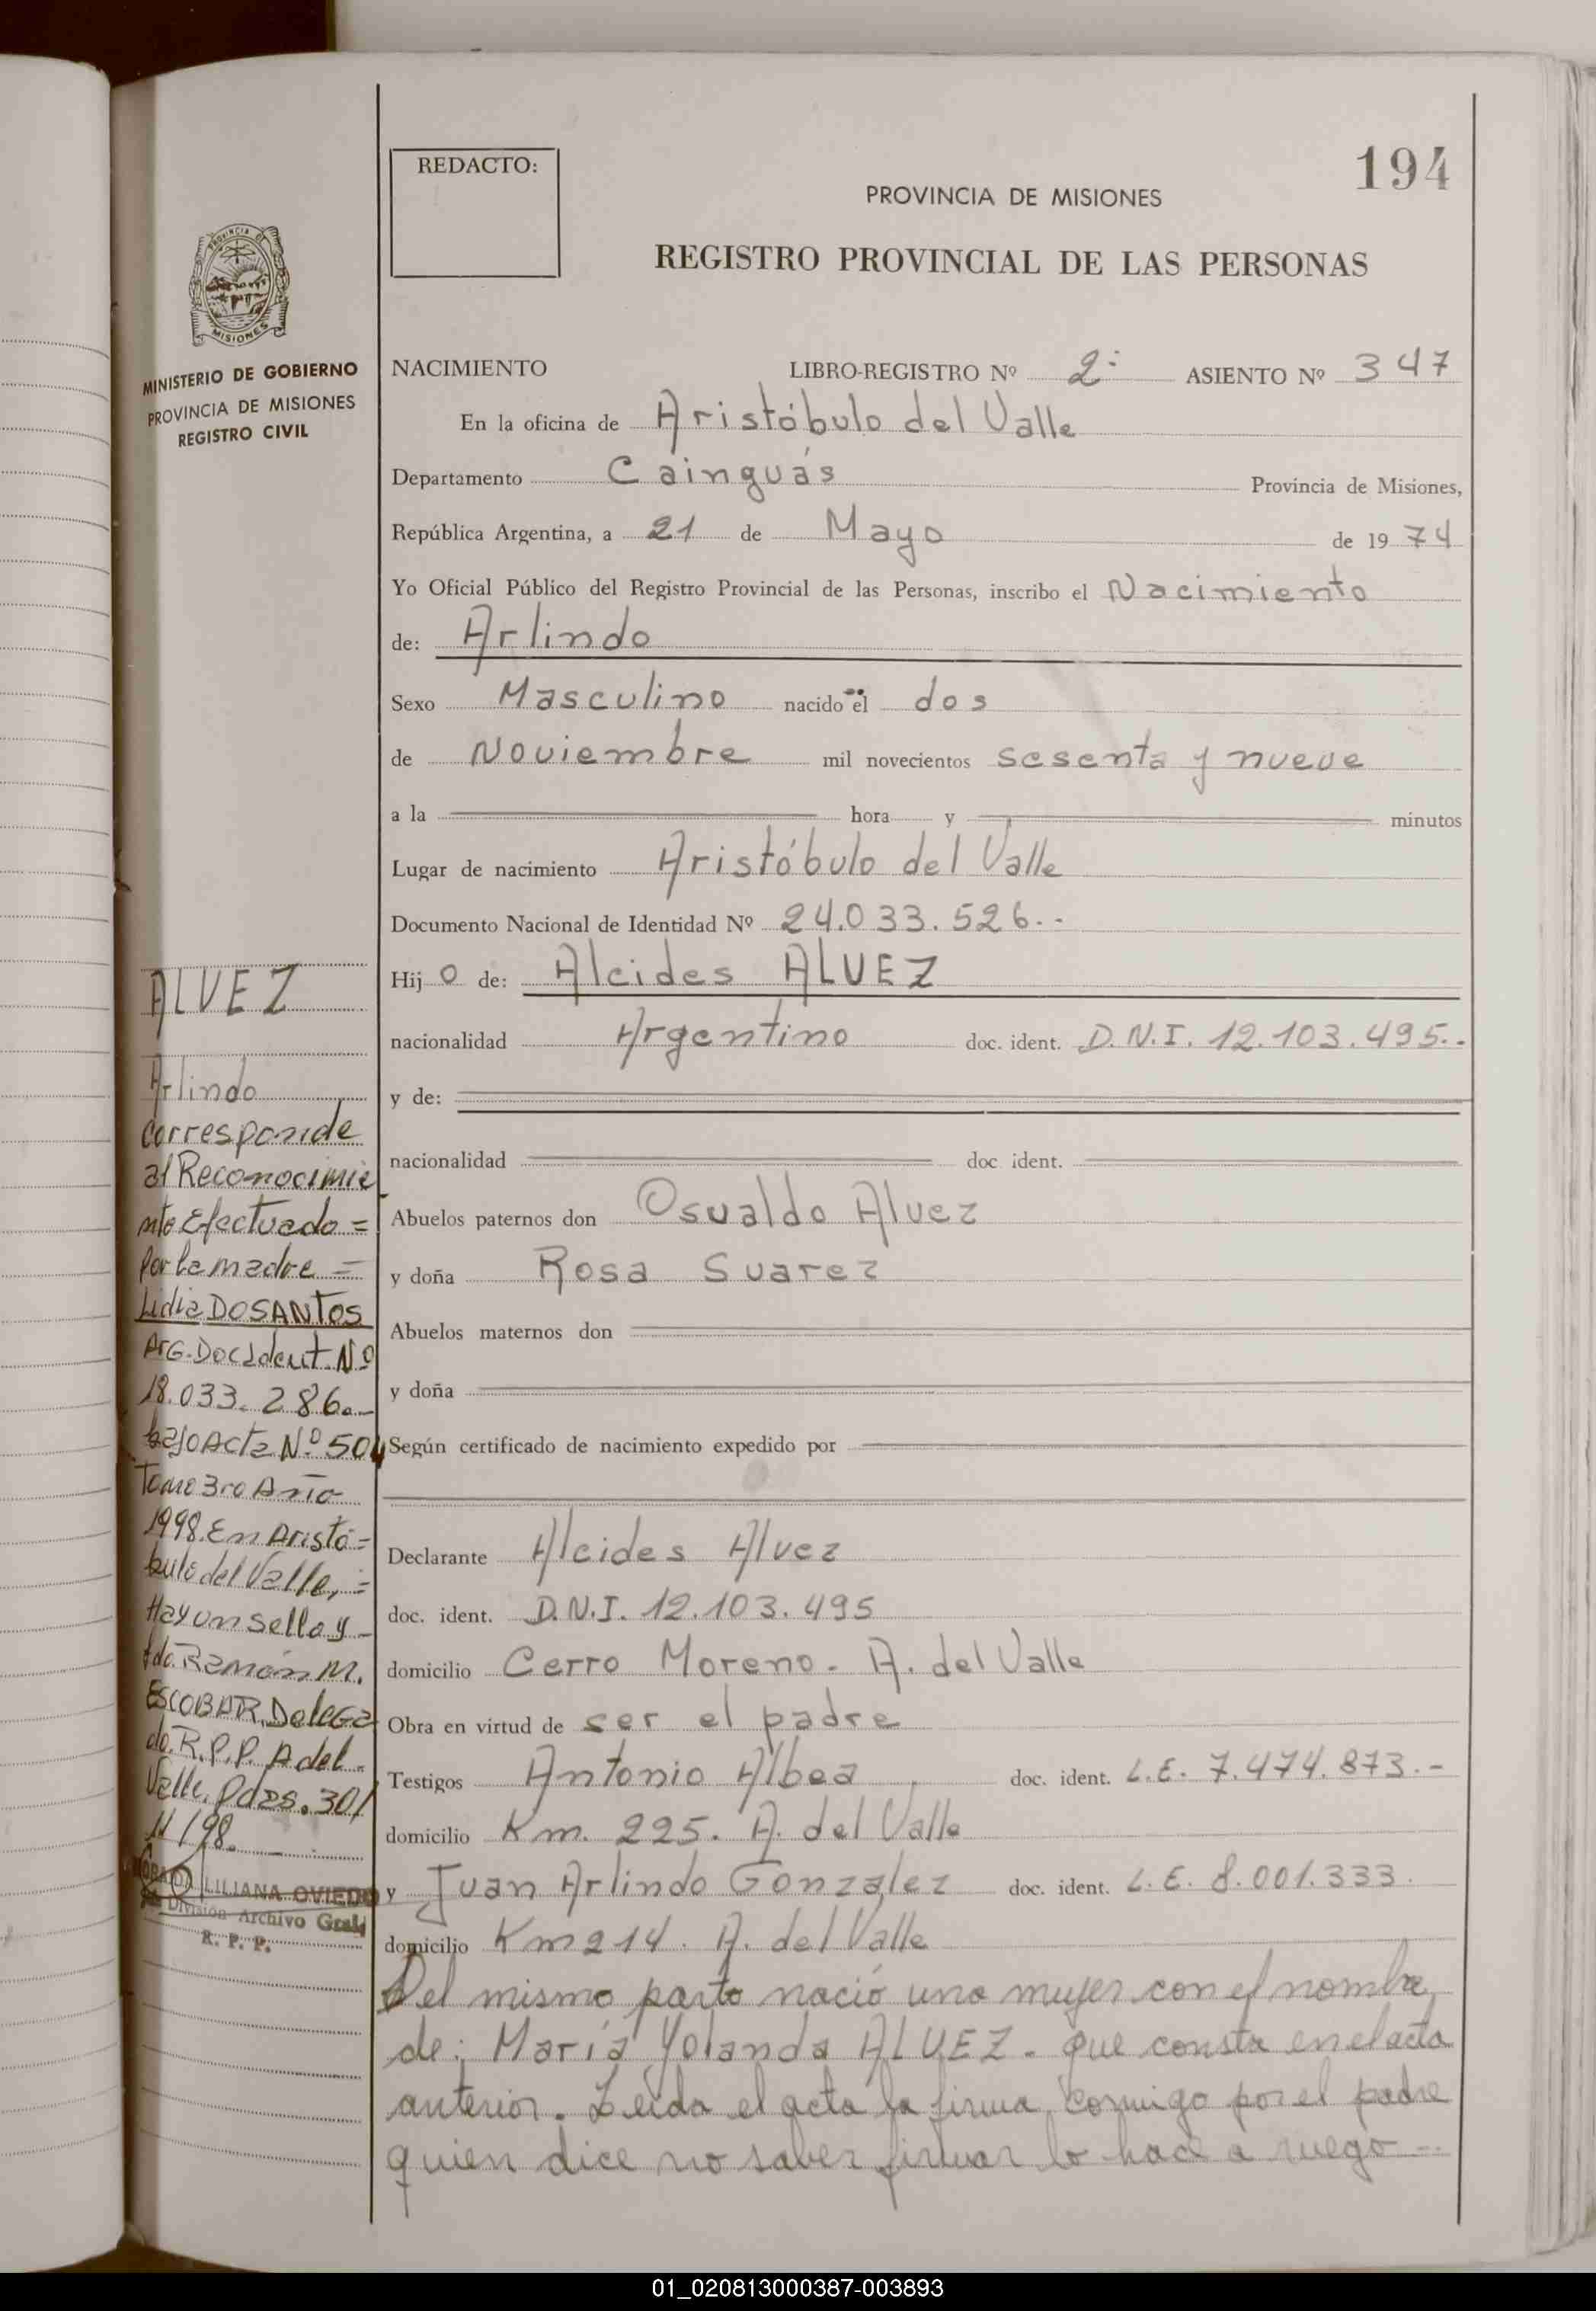 194
REDACTO:
PROVINCIA DE MISIONES
REGISTRO PROVINCIAL DE LAS PERSONAS
PROVINCIA DE
MISIONES
MINISTERIO DE GOBIERNO
PROVINCIA DE MISIONES
REGISTRO CIVIL
NACIMIENTO LIBRO-REGISTRO Nº 2º ASIENTO Nº 347
En la oficina de Aristóbulo del Valle
Departamento Cainguás Provincia de Misiones,
República Argentina, a 21 de Mayo de 1974
Yo Oficial Público del Registro Provincial de las Personas, inscribo el Nacimiento
de: Arlindo
Sexo Masculino nacido el dos
de Noviembre mil novecientos sesenta y nueve
a la hora y minutos
Lugar de nacimiento Aristóbulo del Valle
Documento Nacional de Identidad Nº 24.033.526.-
Hijo de: Alcides ALVEZ
nacionalidad Argentino doc. ident. D.N.I. 12.103.495.-
y de:
nacionalidad doc ident.
Abuelos paternos don Osvaldo Alvez
y doña Rosa Suarez
Abuelos maternos don
y doña
Según certificado de nacimiento expedido por
Declarante Alcides Alvez
doc. ident. D.N.I. 12.103.495
domicilio Cerro Moreno - A. del Valle
Obra en virtud de ser el padre
Testigos Antonio Albea doc. ident. L.E. 7.474.873.-
domicilio Km. 225. A. del Valle
y Juan Arlindo Gonzalez doc. ident. L.E. 8.001.333.
domicilio Km 214. A. del Valle
Del mismo parto nació una mujer con el nombre
de: María Yolanda ALVEZ. que consta en el acta
anterior. Leída el acta la firma conmigo por el padre
quien dice no saber firmar lo hace a ruego --
ALVEZ
Arlindo
Corresponde
al Reconocimie
nto Efectuado =
Por la madre =
Lidia DOSANTOS
Arg. Doc Ident. Nº
18.033.286.-
bajo Acta Nº 504
Tomo 3ro Año
1998. En Aristó=
bulo del Valle, =
Hay un sello y
fdo. Ramón M.
ESCOBAR, Delega
do. R.P.P. A del
Valle. Pdas. 30/
11/98.
LILIANA OVIEDO
División Archivo Gral
R. P. P.
01_020813000387-003893